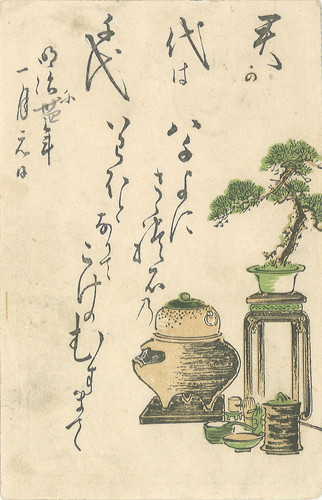 君か
代は
千代
八千よに
さゝれ石乃
いはほとなりて
こけのむすまて
明治丗年
一月元日